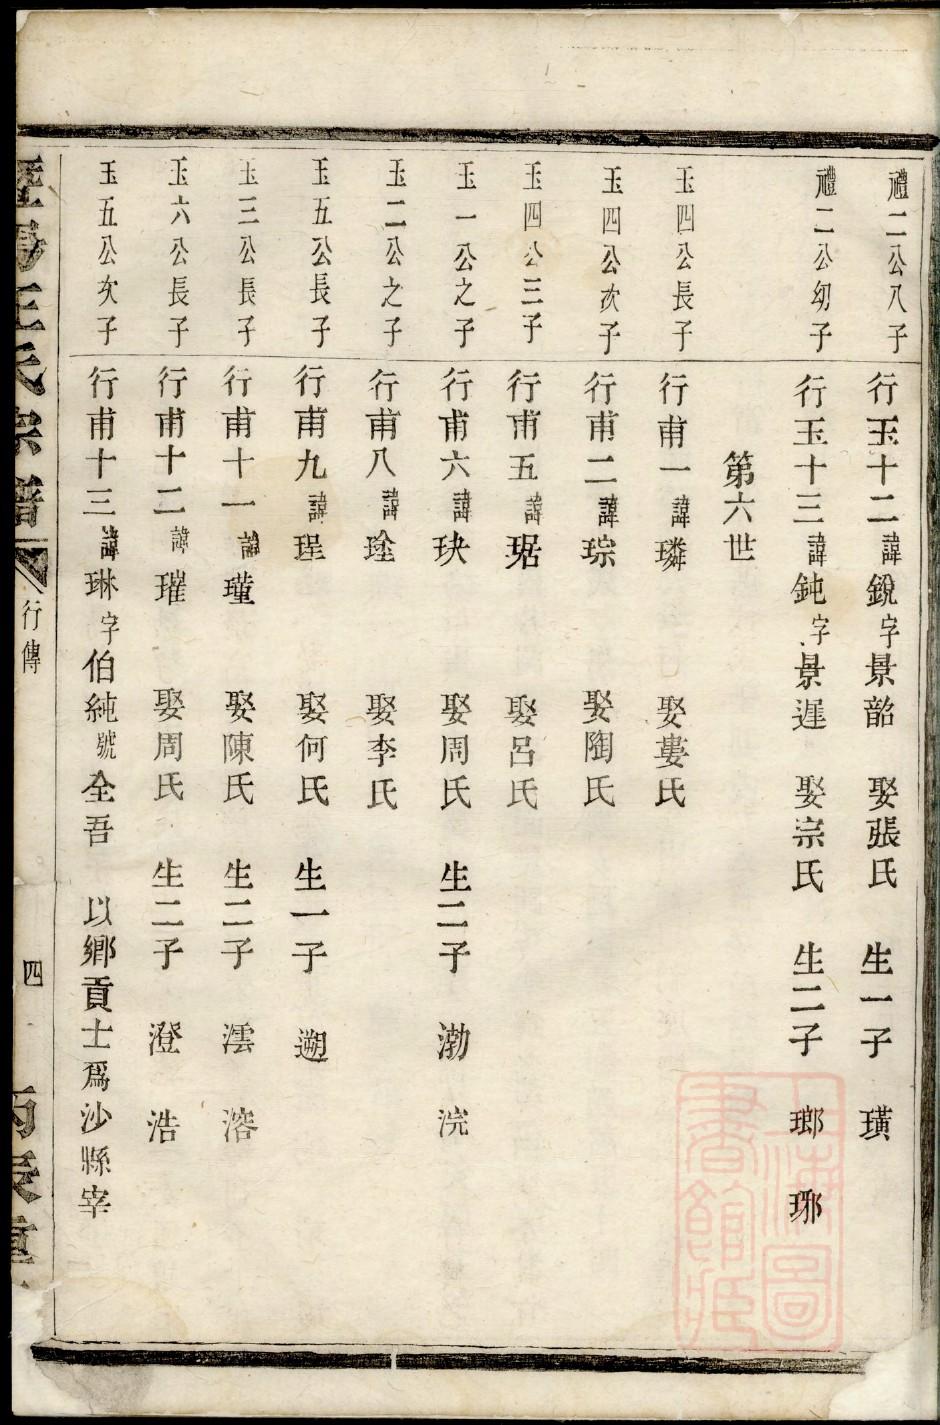 禮二公八子 行玉十二諱銳字景韶 娶張氏 生一子 璜
禮二公幼子 行玉十三諱鈍字景遲 娶宗氏 生二子 瑯 琊
第六世
玉四公長子 行甫一諱璘 娶婁氏
玉四公次子 行甫二諱琮 娶陶氏
玉四公三子 行甫五諱琚 娶呂氏
玉一公之子 行甫六諱玦 娶周氏 生二子 渤 浣
玉二公之子 行甫八諱 娶李氏
玉五公長子 行甫九諱珵 娶何氏 生一子 遡
玉三公長子 行甫十一諱瑾 娶陳氏 生二子 澐 溶
玉六公長子 行甫十二諱璀 娶周氏 生二子 澄 浩
玉五公次子 行甫十三諱琳字伯純號全吾 以鄉貢士爲沙縣宰
王氏宗譜
行傳
四
丙辰重
上海圖
書館藏